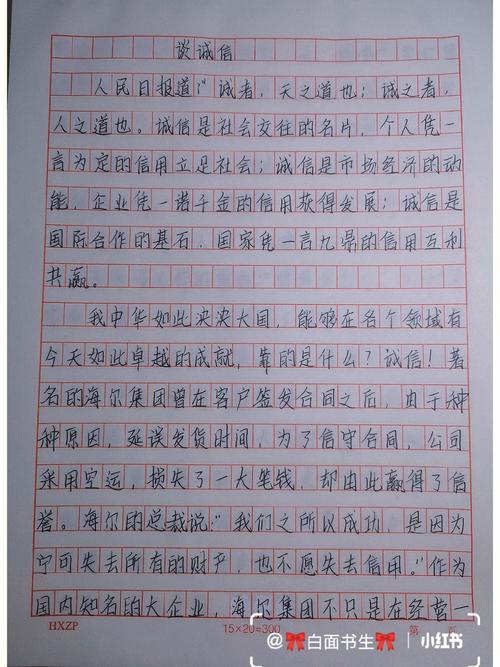 谈诚信
人民日报道:"诚者,天之道也;诚之者,
人之道也。诚信是社会交往的名片,个人凭一
言为定的信用立足社会;诚信是市场经济的动
能,企业凭一诺千金的信用获得发展;诚信是
国际合作的基石,国家凭一言九鼎的信用互利
共赢。
我中华如此泱泱大国,能够在各个领域有
今天如此卓越的成就,靠的是什么?诚信!著
名的海尔集团曾在客户签发合同之后,由于种
种原因,延误发货时间,为了信守合同,公司
采用空运,损失了一大笔钱,却由此赢得了信
誉。海尔的总裁说:"我们之所以成功,是因为
宁可失去所有的财产,也不愿失去信用。"作为
国内知名的大企业,海尔集团不只是在经营一
HXZP 15×20=300 第 页
@🎀白面书生🎀 小红书